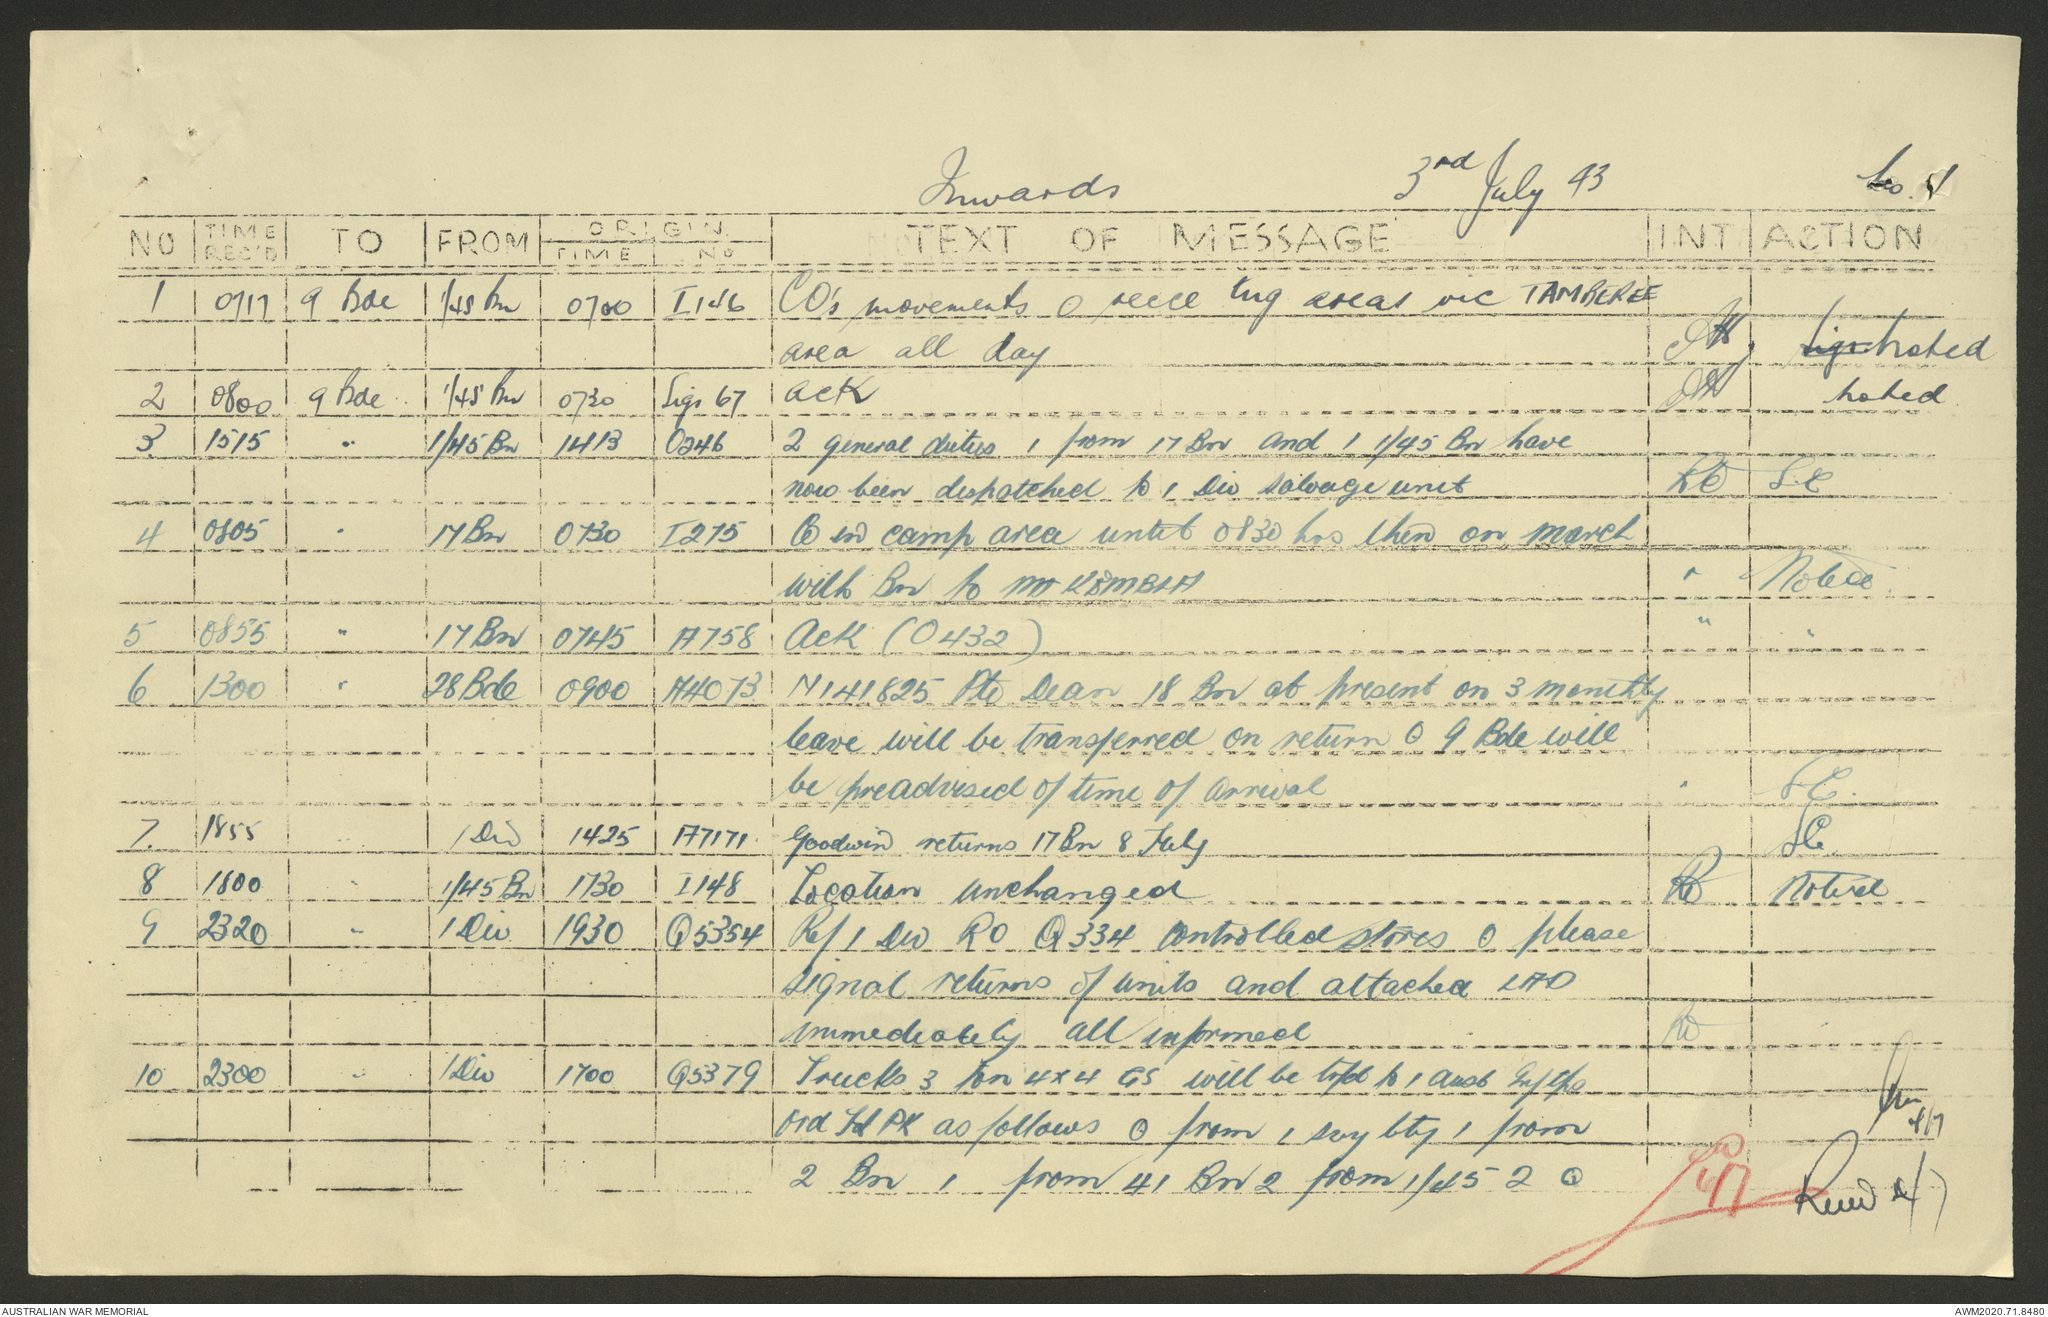 Inwards 3rd July 43 No. 1
NO TIME REC'D TO FROM ORIGIN TIME NO TEXT OF MESSAGE INT ACTION
1 0717 9 Bde 1/45 Bn 0700 I146 CO's movements O recce trg areas vic TAMBEREE
area all day noted
2 0800 9 Bde 1/45 Bn 0730 Sigs 67 ack noted
3 1515 " 1/45 Bn 1413 O246 2 general duties 1 from 17 Bn and 1 1/45 Bn have
now been dispatched to 1 Div Salvage unit RO S.C
4 0805 " 17 Bn 0730 I275 Co in camp area until 0830 hrs then on march
with Bn to mt KEMBLA " Noted
5 0855 " 17 Bn 0745 A758 Ack (O432) " "
6 1300 " 28 Bde 0900 A4073 N141825 Pte Dean 18 Bn at present on 3 monthly
leave will be transferred on return O 9 Bde will
be preadvised of time of arrival " S.C.
7. 1855 " 1 Div 1425 A7171 Goodwin returns 17 Bn 8 July SC.
8 1800 " 1/45 Bn 1730 I148 Location unchanged RO Noted
9 2320 " 1 Div 1930 Q5354 Ref 1 Div RO Q334 controlled stores O please
signal returns of units and attached LAD
immediately all informed RO
10 2300 " 1 Div 1700 Q5379 Trucks 3 ton 4x4 GS will be tfd to 1 Aust
Ord Fd Pk as follows O from 1 svy bty 1 from 4/7
2 Bn 1 from 41 Bn 2 from 1/45 2 O 4/7 4/7
AUSTRALIAN WAR MEMORIAL AWM2020.71.8480